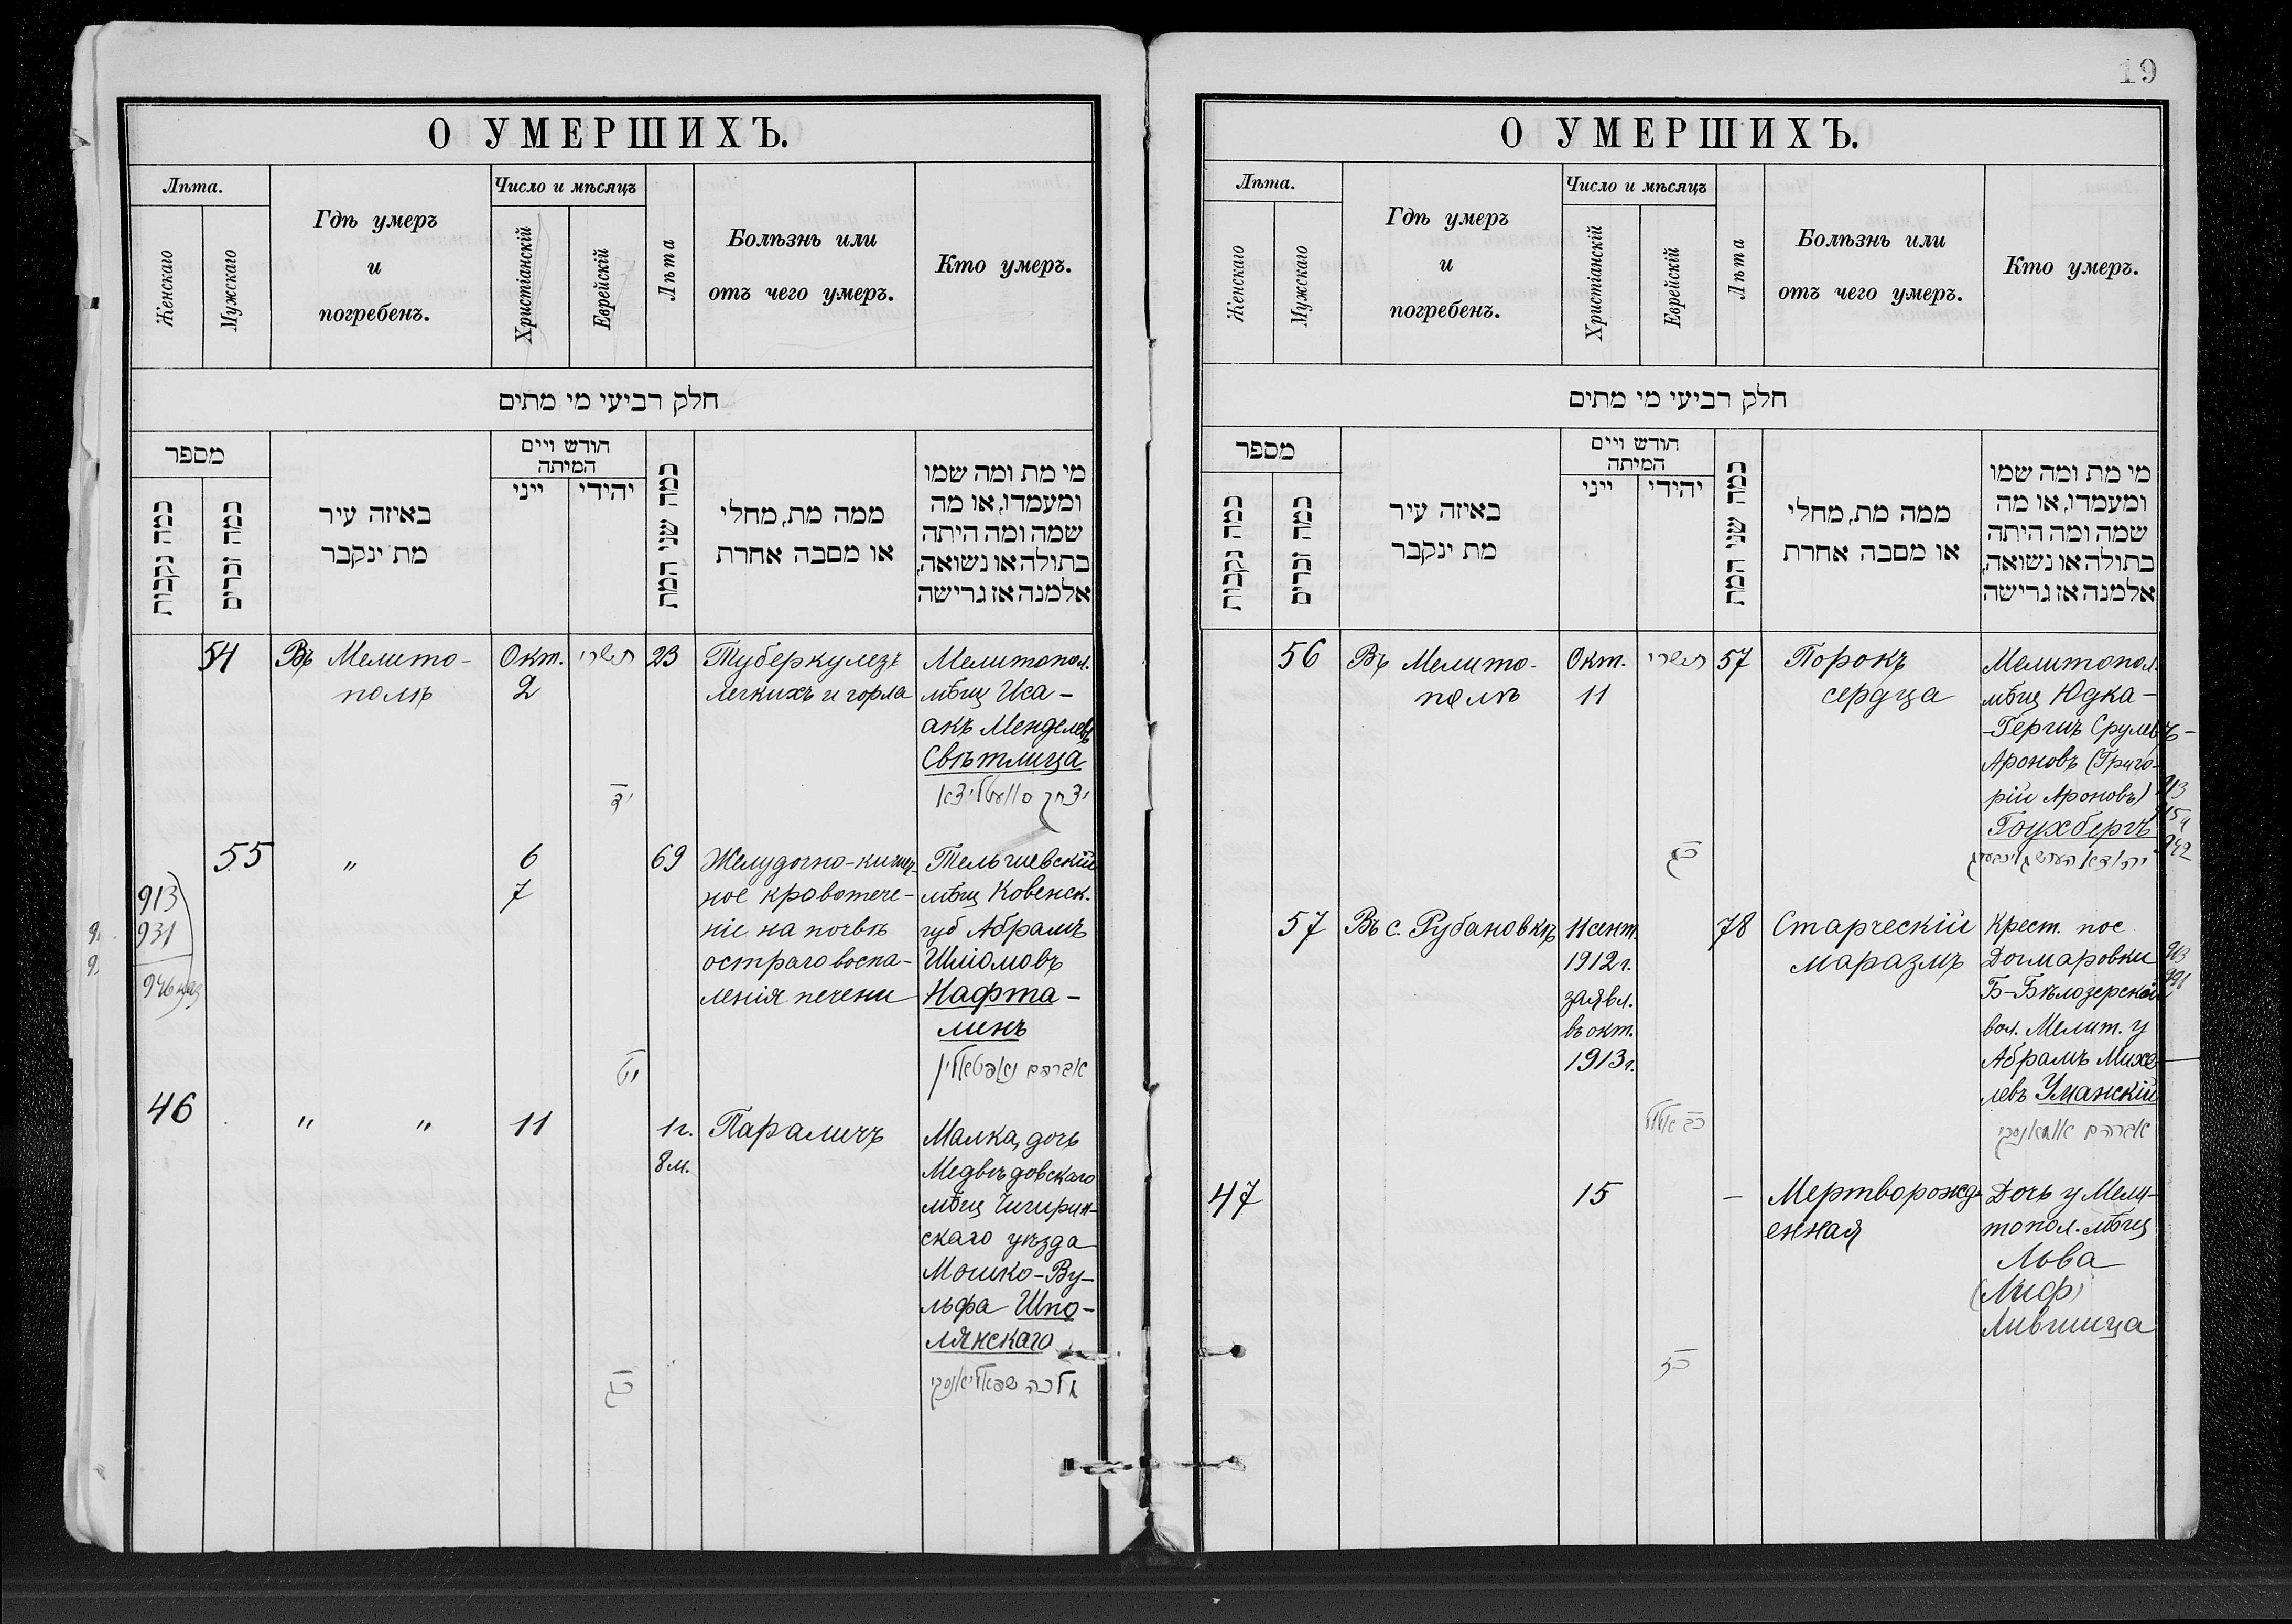 19
О УМЕРШИХЪ.
Лѣта.
Женскаго
Мужскаго
Гдѣ умеръ
и
погребенъ.
Число и мѣсяцъ
Христіанскій
Еврейскій
Лѣта
Болѣзнь или
отъ чего умеръ.
Кто умеръ.
חלק רביעי מי מתים
מספר
כמה נקבות
כמה זכרים
באיזה עיר
מת ינקבר
חודש ויים
המיתה
ייני
יהידי
כמה שני המת
ממה מת, מחלי
או מסבה אחרת
מי מת ומה שמו
ומעמדו, או מה
שמה ומה היתה
בתולה או נשואה,
אלמנה אז גרישה
54
Въ Мелито-
полѣ
Окт.
2
תשרי
יד
23
Туберкулезъ
легкихъ и горла
Мелитопол.
мѣщ Иса-
акъ Менделевъ
Свѣтлица
יצחק סוועטליצא
55
"
6
7
יט
69
Желудочно-кишеч-
ное кровотече-
ніе на почвѣ
остраго воспа-
ленія печени
Тельшевскій
мѣщ Ковенск.
губ Абрамъ
Шліомовъ
Нафта-
линъ
אברהם נאפטאלין
913
931
46
" "
11
1 г.
8 м.
Параличъ
Малка, дочь
Медвѣдовскаго
мѣщ Чигирин-
скаго уѣзда
Мошко-Ву-
льфа Шпо-
лянскаго
מלכה שפאליאנסקי
О УМЕРШИХЪ.
Лѣта.
Женскаго
Мужскаго
Гдѣ умеръ
и
погребенъ.
Число и мѣсяцъ
Христіанскій
Еврейскій
Лѣта
Болѣзнь или
отъ чего умеръ.
Кто умеръ.
חלק רביעי מי מתים
מספר
כמה נקבות
כמה זכרים
באיזה עיר
מת ינקבר
חודש ויים
המיתה
ייני
יהידי
כמה שני המת
ממה מת, מחלי
או מסבה אחרת
מי מת ומה שמו
ומעמדו, או מה
שמה ומה היתה
בתולה או נשואה,
אלמנה אז גרישה
56
Въ Мелито-
полѣ
Окт.
11
תשרי
57
Порокъ
сердца
Мелитопол.
мѣщ Юдка-
-Гершъ Срулевъ-
Ароновъ (Григо-
рій Ароновъ)
Гоухбергъ
57
Въ с. Рубановкѣ
11 сент.
1912 г.
заявл.
въ окт.
1913 г.
כב אלול
78
Старческій
маразмъ
Крест. пос
Домаровки
Б-Бѣлозерской
вол. Мелит. у
Абрамъ Михе-
левъ Уманскій
אברהם אומאנסקי
47
15
–
Мертворожд-
енная
Дочь у Мели-
топол. мѣщ
Льва
(Лиф)
Лившица